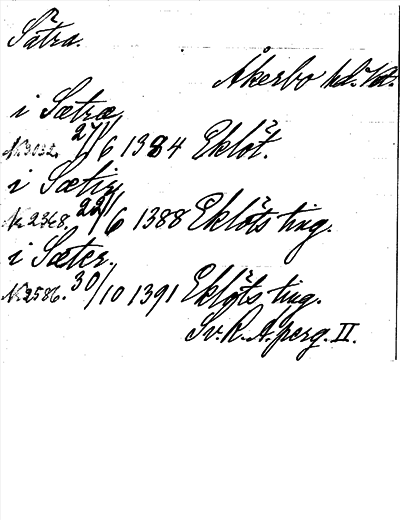 Sätra.
Åkerbo hd. Vstm.
i Sætræ
N 3032. 27/6 1384 Eklöt.
i Sætir
N 2368. 22/6 1388 Eklöts ting.
i Sæter.
N 2586. 30/10 1391 Eklöts ting.
Sv. R. A. perg. II.